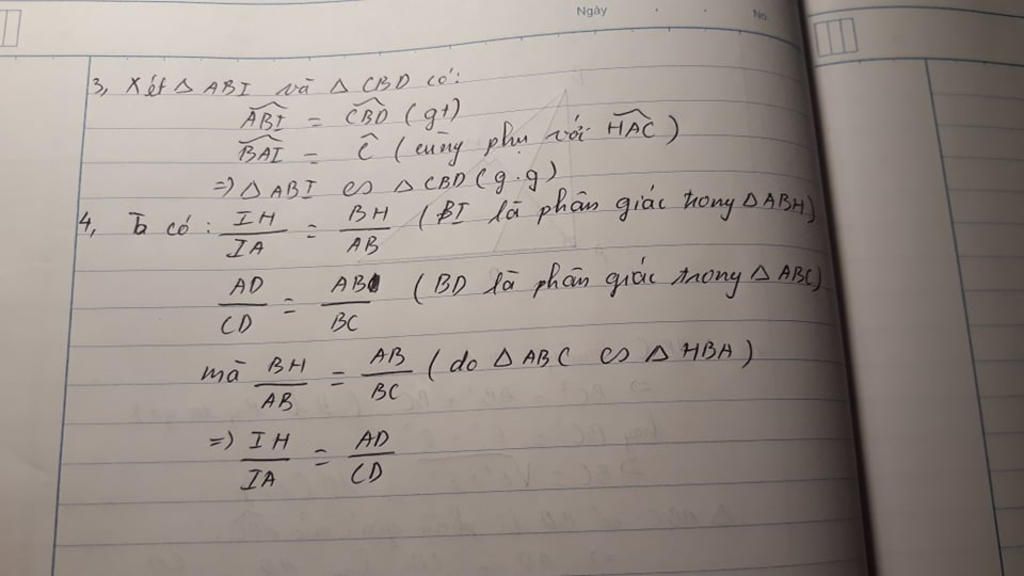 Ngày No.
3, Xét △ ABI và △ CBD có:
\widehat{ABI} = \widehat{CBD} (gt)
\widehat{BAI} = \widehat{C} (cùng phụ với \widehat{HAC})
=> △ ABI ∽ △ CBD (g.g)
4, Ta có: \frac{IH}{IA} = \frac{BH}{AB} (BI là phân giác trong △ ABH)
\frac{AD}{CD} = \frac{AB}{BC} (BD là phân giác trong △ ABC)
mà \frac{BH}{AB} = \frac{AB}{BC} (do △ ABC ∽ △ HBA)
=> \frac{IH}{IA} = \frac{AD}{CD}